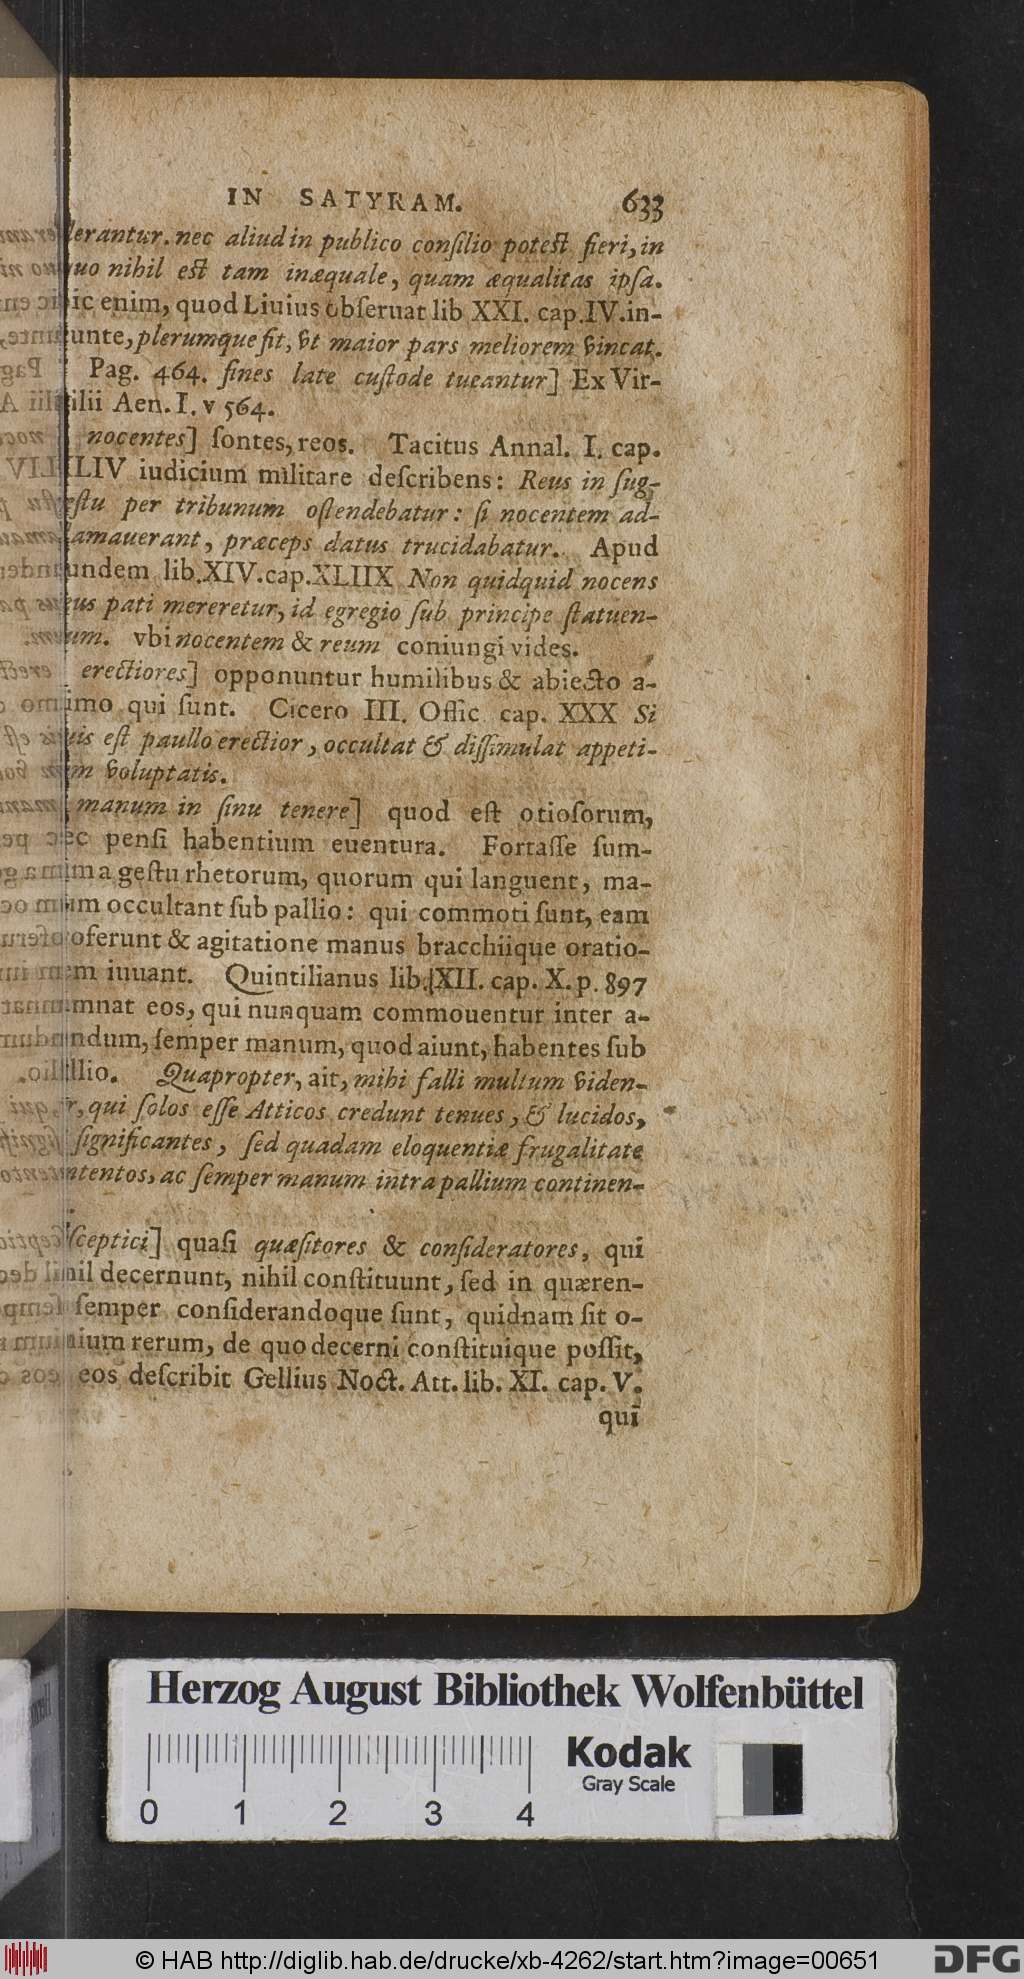 IN SATYRAM. 633
lerantur. nec aliud in publico conſilio poteſt fieri, in
quo nihil eſt tam inæquale, quam æqualitas ipſa.
ic enim, quod Liuius obſeruat lib XXI. cap. IV. in-
unte, plerumque fit, vt maior pars meliorem vincat.
Pag. 464. fines late cuſtode tueantur] Ex Vir-
ilii Aen. I. v 564.
nocentes] ſontes, reos. Tacitus Annal. I. cap.
LIV iudicium militare deſcribens: Reus in ſug-
eſtu per tribunum oſtendebatur: ſi nocentem ad-
lamauerant, præceps datus trucidabatur. Apud
undem lib. XIV. cap. XLIIX Non quidquid nocens
eus pati mereretur, id egregio ſub principe ſtatuen-
um. vbi nocentem & reum coniungi vides.
erectiores] opponuntur humilibus & abiecto a-
imo qui ſunt. Cicero III. Offic cap. XXX Si
uis eſt paullo erectior, occultat & diſſimulat appeti-
m voluptatis.
manum in ſinu tenere] quod eſt otioſorum,
ec penſi habentium euentura. Fortaſſe ſum-
ma geſtu rhetorum, quorum qui languent, ma-
um occultant ſub pallio: qui commoti ſunt, eam
oferunt & agitatione manus bracchiique oratio-
em iuuant. Quintilianus lib. XII. cap. X. p. 897
mnat eos, qui nunquam commouentur inter a-
ndum, ſemper manum, quod aiunt, habentes ſub
llio. Quapropter, ait, mihi falli multum viden-
r, qui ſolos eſſe Atticos credunt tenues, & lucidos,
ſignificantes, ſed quadam eloquentiæ frugalitate
ntentos, ac ſemper manum intra pallium continen-
ſceptici] quaſi quæſitores & conſideratores, qui
hil decernunt, nihil conſtituunt, ſed in quæren-
ſemper conſiderandoque ſunt, quidnam ſit o-
nium rerum, de quo decerni conſtituique poſſit,
eos deſcribit Gellius Noct. Att. lib. XI. cap. V.
qui
Herzog August Bibliothek Wolfenbüttel
Kodak
Gray Scale
0 1 2 3 4
© HAB http://diglib.hab.de/drucke/xb-4262/start.htm?image=00651
DFG